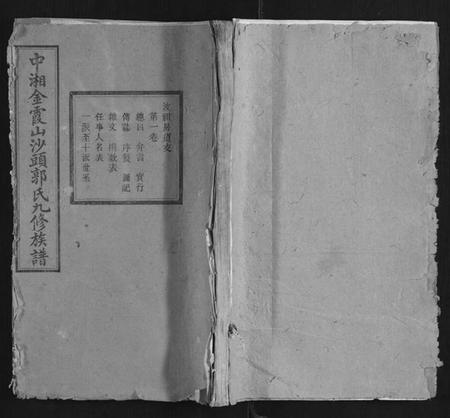 中湘金霞山沙頭郭氏九修族譜
汝祖易道支
第一卷
總目 弁言 實行
傳誌 序
雜文 捐款表
任事人名表
一派至十派世系